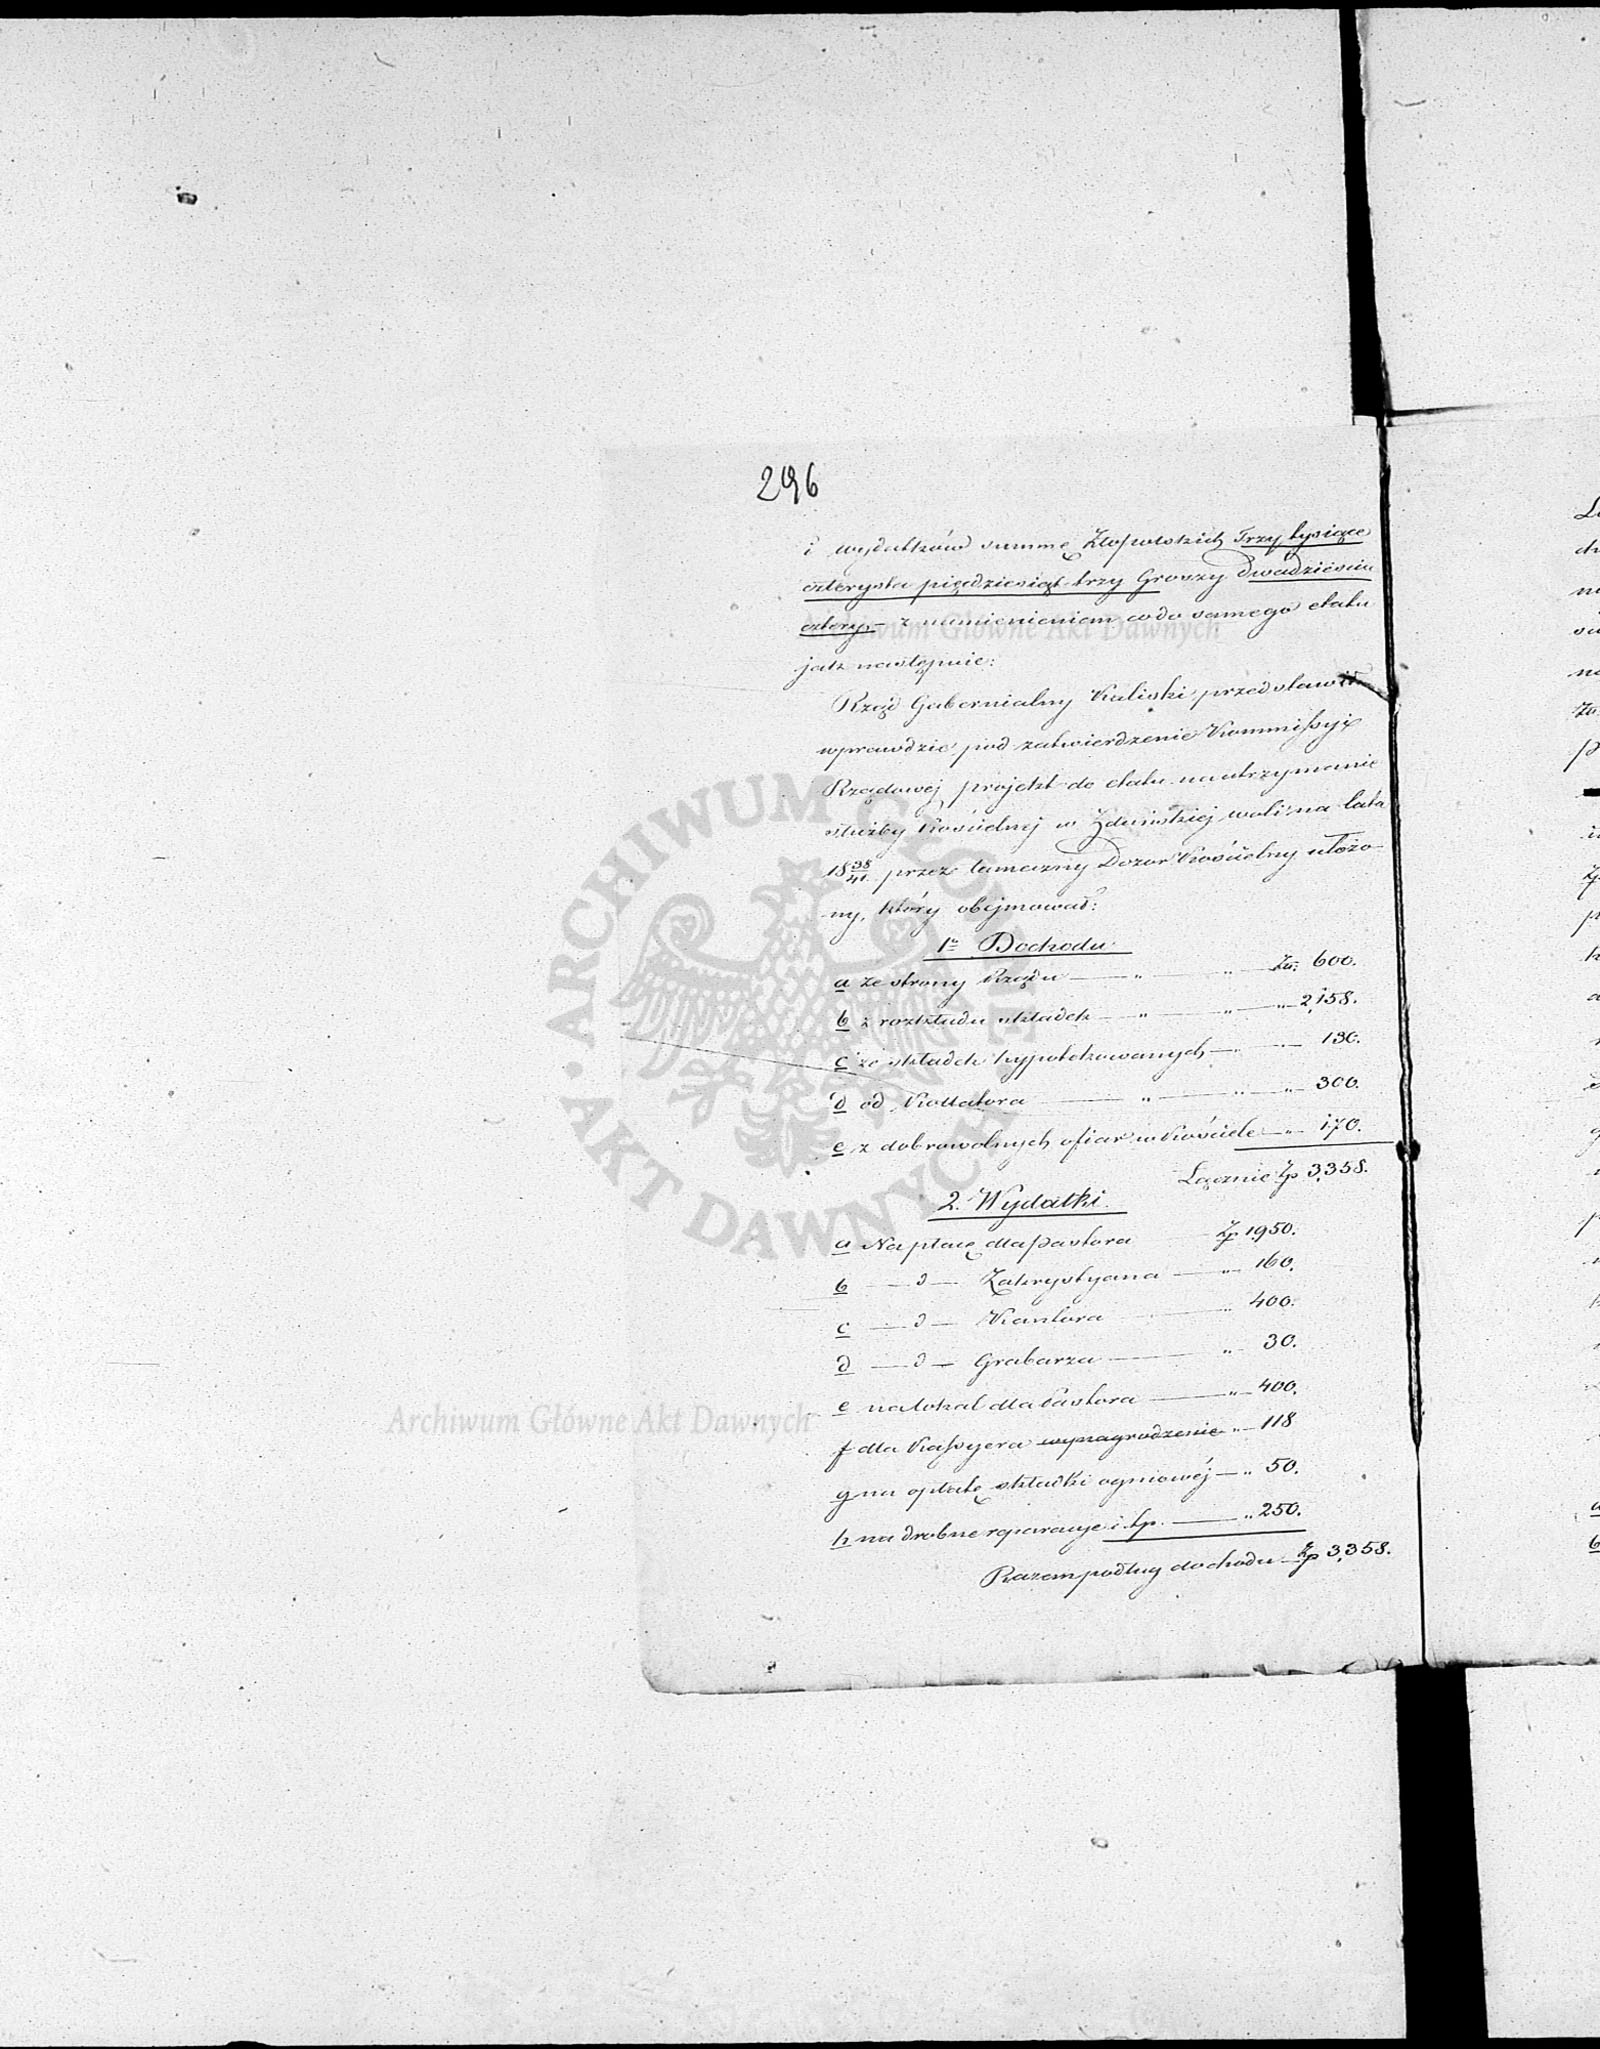 296
i wydatków summę Złopolskich Trzy tysiące
czterysta pięćdziesiąt trzy Groszy dwadzieścia
cztery,- z namienieniem co do samego etatu
jak następnie:
Rząd Gubernialny Kaliski przedstawił
wprawdzie pod zatwierdzenie Kommissyi
Rządowej projekt do etatu na utrzymanie
służby Kościelnej w Zduńskiej woli na lata
18 38/41 przez tameczny Dozór Kościelny ułożo-
ny, który obejmował:
1º Dochodu
a ze strony Rządu — " " — Zł: 600.
b z rozkładu składek — " — " — " 2,158.
c ze składek hypotekowanych — " — 130.
d od Kollatora — " — " — " 300.
e z dobrowolnych ofiar w Kościele — " 170.
Łącznie Zp 3,358.
2. Wydatki.
a Na płacę dla Pastora Zp 1,950.
b — d — Zakrystyana — " 160.
c — d — Kantora — " 400.
d — d — Grabarza — " 30.
e na lokal dla Pastora — " 400.
f dla Kassyera wynagrodzenie " 118
g na opłatę składki ogniowéj — " 50.
h na drobne reparacye i tp. — " 250.
Razem podług dochodu Zp 3,358.
ARCHIWUM GŁÓWNE AKT DAWNYCH
Archiwum Główne Akt Dawnych
Archiwum Główne Akt Dawnych